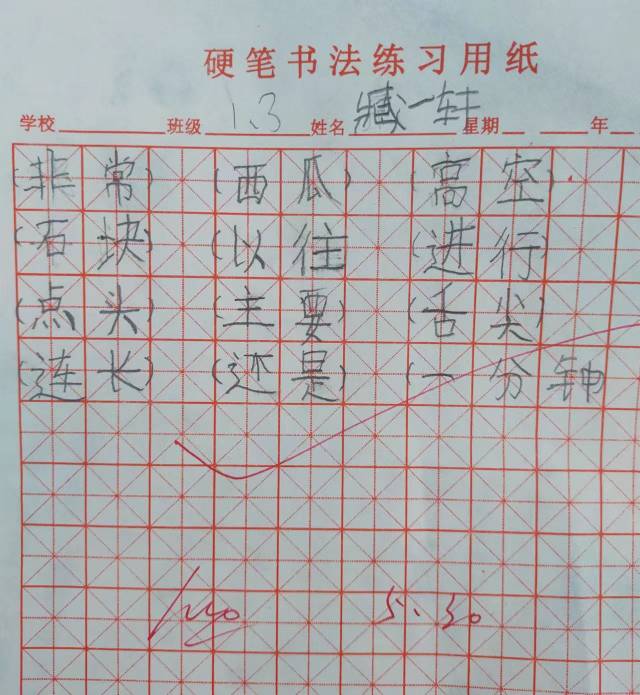 硬笔书法练习用纸
学校 班级 1、3 姓名 臧一轩 星期 年
(非常) (西瓜) (高空)
(石块) (以往 (进行
(点头) (主要) (舌尖)
(连长) (还是) (一分钟
100 5.30